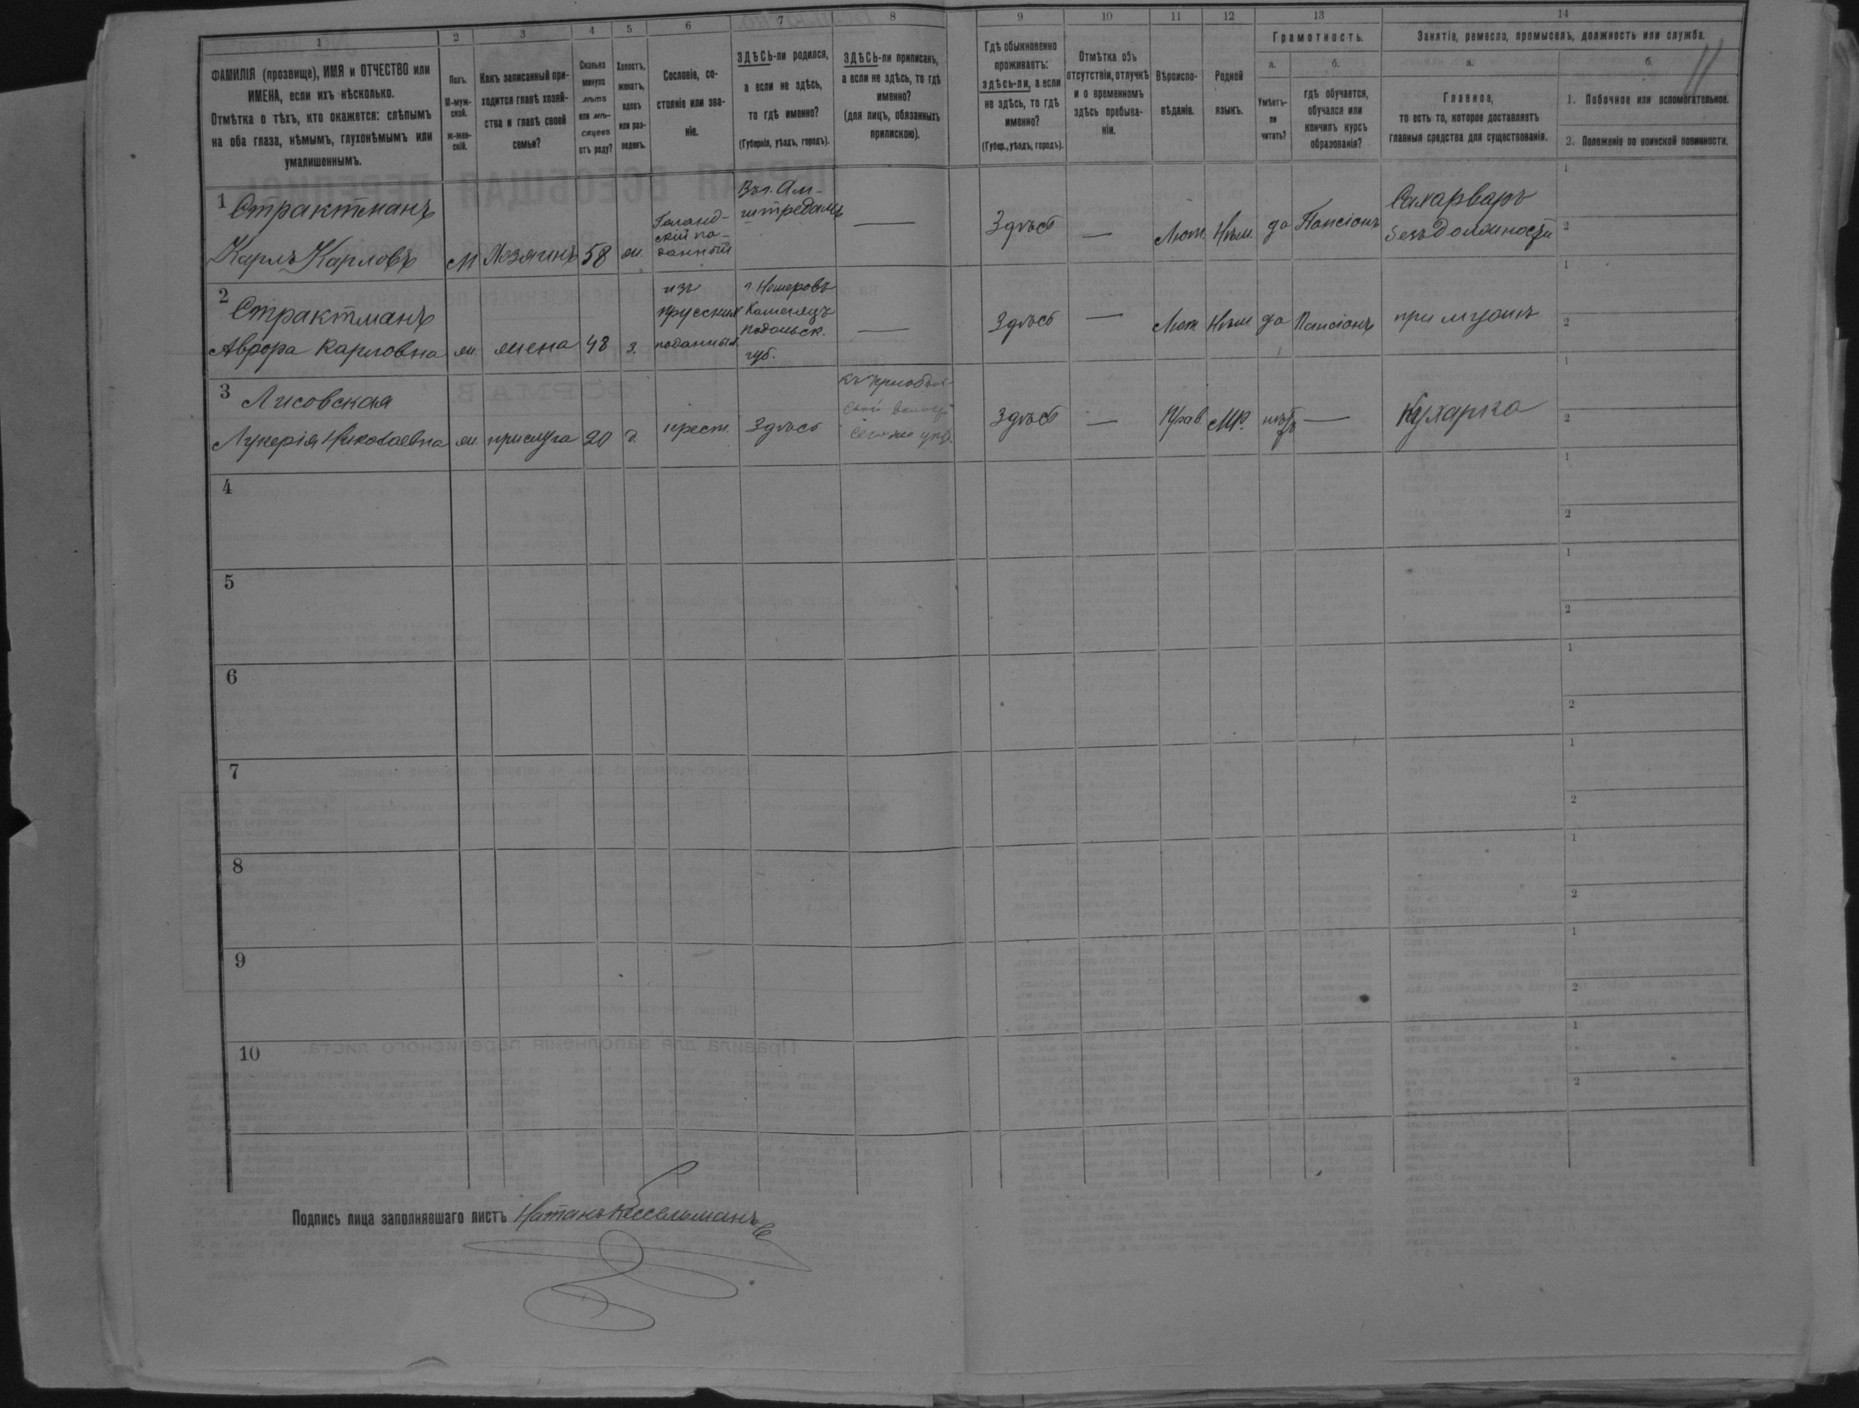 1 2 3 4 5 6 7 8 9 10 11 12 13 14
ФАМИЛІЯ (прозвище), ИМЯ и ОТЧЕСТВО или
ИМЕНА, если ихъ нѣсколько.
Отмѣтка о тѣхъ, кто окажется: слѣпымъ
на оба глаза, нѣмымъ, глухонѣмымъ или
умалишеннымъ.
Полъ.
М-муж-
ской.
Ж-жен-
скій.
Какъ записанный при-
ходится главѣ хозяй-
ства и главѣ своей
семьи?
Сколько
минуло
лѣтъ
или мѣ-
сяцевъ
отъ роду?
Холостъ,
женатъ,
вдовъ
или раз-
веденъ.
Сословіе, со-
стояніе или зва-
ніе.
ЗДѢСЬ-ли родился,
а если не здѣсь,
то гдѣ именно?
(Губернія, уѣздъ, городъ).
ЗДѢСЬ-ли приписанъ,
а если не здѣсь, то гдѣ
именно?
(для лицъ, обязанныхъ
припискою).
Гдѣ обыкновенно
проживаетъ:
здѣсь-ли, а если
не здѣсь, то гдѣ
именно?
(Губер., уѣздъ, городъ).
Отмѣтка объ
отсутствіи, отлучкѣ
и о временномъ
здѣсь пребыва-
ніи.
Вѣроиспо-
вѣданіе.
Родной
языкъ.
Грамотность.
а.
Умѣетъ-
ли
читать?
б.
гдѣ обучается,
обучался или
кончилъ курсъ
образованія?
Занятіе, ремесло, промыселъ, должность или служба.
а.
Главное,
то есть то, которое доставляетъ
главныя средства для существованія.
б.
11
1. Побочное или вспомогательное.
2. Положеніе по воинской повинности.
1 Страктманъ
Карлъ Карловъ
М
Хозяинъ
58
ж.
Голанд-
скій по-
данный
Въ г. Ам-
штредамъ
—
Здѣсь
—
Лют.
Нѣм.
да
Пансіонъ
безъ Должности
1
2
2
Страктманъ
Аврора Карловна
ж.
жена
48
з.
изъ
прусскихъ
поданныхъ
г. Немеровъ
Каменецъ
подольск.
губ.
—
Здѣсь
—
Лют
Нѣм
да
Пансіонъ
при мужѣ
1
2
3
Лисовская
Лукерія Николаевна
ж.
прислуга
20
д.
крест.
Здѣсь
Здѣсь
—
Прав.
МР.
нѣтъ
—
Кухарка
1
2
4
1
2
5
1
2
6
1
2
7
1
2
8
1
2
9
1
2
10
1
2
Подпись лица заполнявшаго листъ Натанъ Кессельманъ